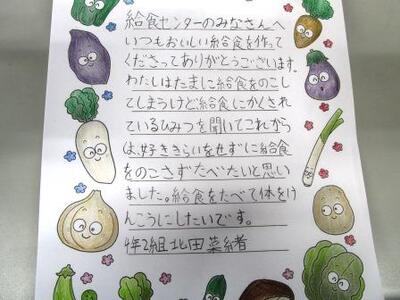 給食センターのみなさんへ
いつもおいしい給食を作って
くださってありがとうございます。
わたしはたまに給食をのこし
てしまうけど給食にかくされ
ているひみつを聞いてこれから
は、好ききらいをせずに給食
をのこさずたべたいと思い
ました。給食をたべて体をけ
んこうにしたいです。
4年2組北田菜緒